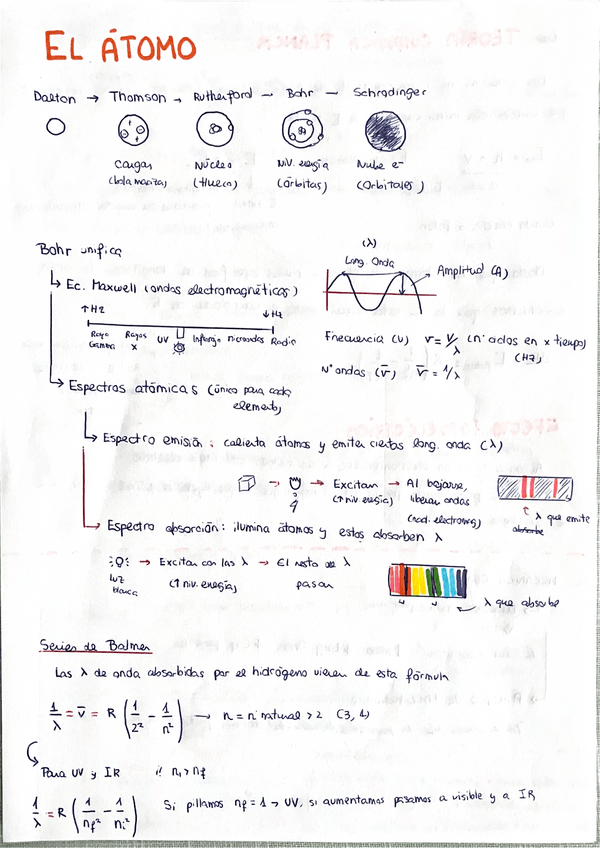 EL ÁTOMO
Dalton → Thomson → Rutherford — Bohr — Schrodinger
Cargas Núcleo Niv. energía Nube e-
(bola maciza) (Hueco) (órbitas) (Orbitales)
Bohr unifica
(λ)
Long. Onda
Amplitud (A)
Ec. Maxwell (ondas electromagnéticas)
↑Hz ↓Hz
Rayos Gamma Rayos X UV Infrarojo microondas Radio
Frecuencia (ν) ν = V/λ (nº ciclos en x tiempo)
(Hz)
Nº ondas (ν̅) ν̅ = 1/λ
Espectros atómicas (único para cada
elemento)
Espectro emisión: calienta átomos y emiten ciertas long. onda (λ)
→ Excitan → Al bajarse,
(↑ niv. energía) liberan ondas
(rad. electromag)
λ que emite
absorbe
Espectro absorción: ilumina átomos y estos absorben λ
→ Excitan con las λ → El resto de λ
luz blanca (↑ niv. energía) pasan
λ que absorbe
Series de Balmer
Las λ de onda absorbidas por el hidrógeno vienen de esta fórmula
1/λ = ν̅ = R (1/2² - 1/n²) → n = nº natural > 2 (3, 4)
Para UV y IR ¡! ni > nf
1/λ = R (1/nf² - 1/ni²) Si pillamos nf = 1 → UV, si aumentamos pasamos a visible y a IR